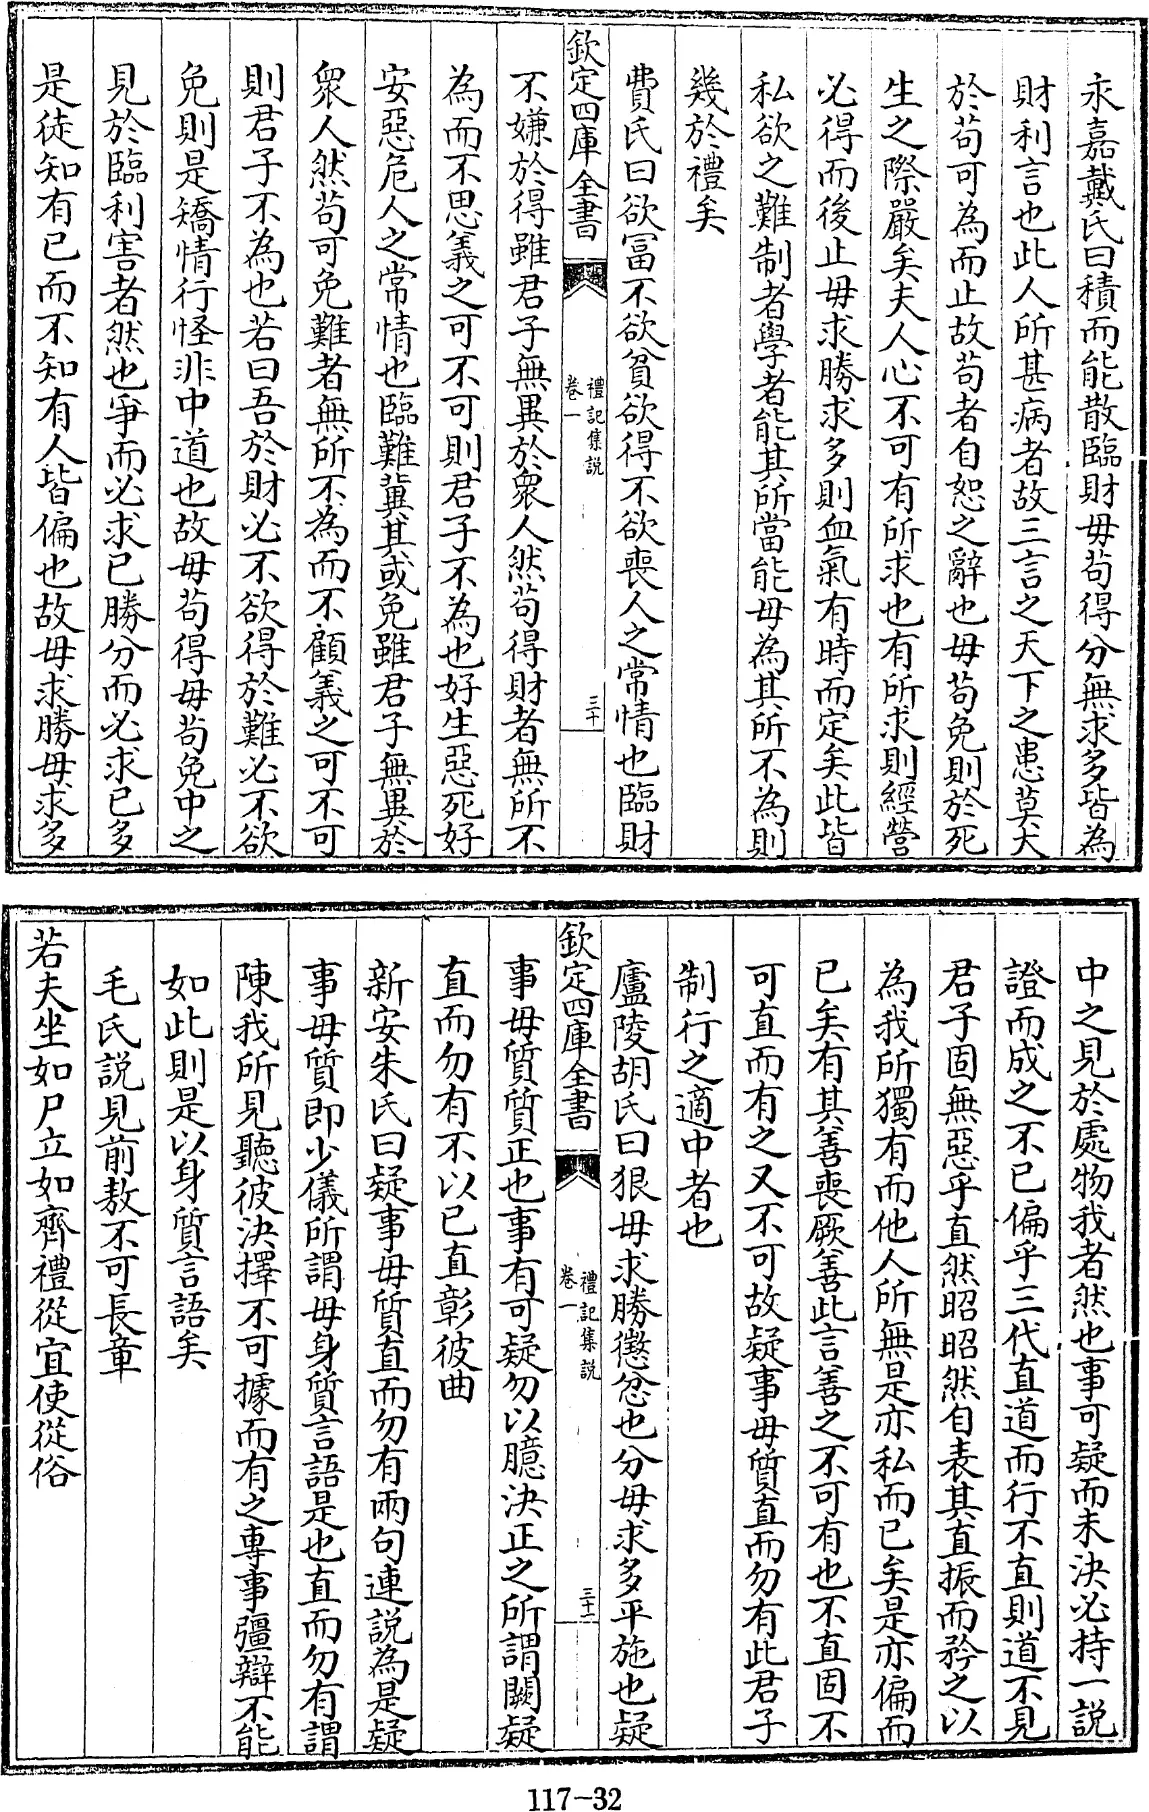 永嘉戴氏曰積而能散臨財毋苟得分無求多皆為
財利言也此人所甚病者故三言之天下之患莫大
於苟可為而止故苟者自恕之辭也毋苟免則於死
生之際嚴矣夫人心不可有所求也有所求則經營
必得而後止毋求勝求多則血氣有時而定矣此皆
私欲之難制者學者能其所當能毋為其所不為則
幾於禮矣
費氏曰欲富不欲貧欲得不欲喪人之常情也臨財
欽定四庫全書
禮記集説
卷一
三十
不嫌於得雖君子無異於衆人然苟得財者無所不
為而不思義之可不可則君子不為也好生惡死好
安惡危人之常情也臨難冀其或免雖君子無異於
衆人然苟可免難者無所不為而不顧義之可不可
則君子不為也若曰吾於財必不欲得於難必不欲
免則是矯情行怪非中道也故毋苟得毋苟免中之
見於臨利害者然也爭而必求已勝分而必求已多
是徒知有已而不知有人皆偏也故毋求勝毋求多
中之見於處物我者然也事可疑而未決必持一説
證而成之不已偏乎三代直道而行不直則道不見
君子固無惡乎直然昭昭然自表其直振而矜之以
為我所獨有而他人所無是亦私而已矣是亦偏而
已矣有其善喪厥善此言善之不可有也不直固不
可直而有之又不可故疑事毋質直而勿有此君子
制行之適中者也
廬陵胡氏曰狠毋求勝懲忿也分毋求多平施也疑
欽定四庫全書
禮記集説
卷一
三十一
事毋質質正也事有可疑勿以臆決正之所謂闕疑
直而勿有不以已直彰彼曲
新安朱氏曰疑事毋質直而勿有兩句連説為是疑
事毋質即少儀所謂毋身質言語是也直而勿有謂
陳我所見聽彼決擇不可據而有之專事彊辯不能
如此則是以身質言語矣
毛氏説見前敖不可長章
若夫坐如尸立如齊禮從宜使從俗
117-32